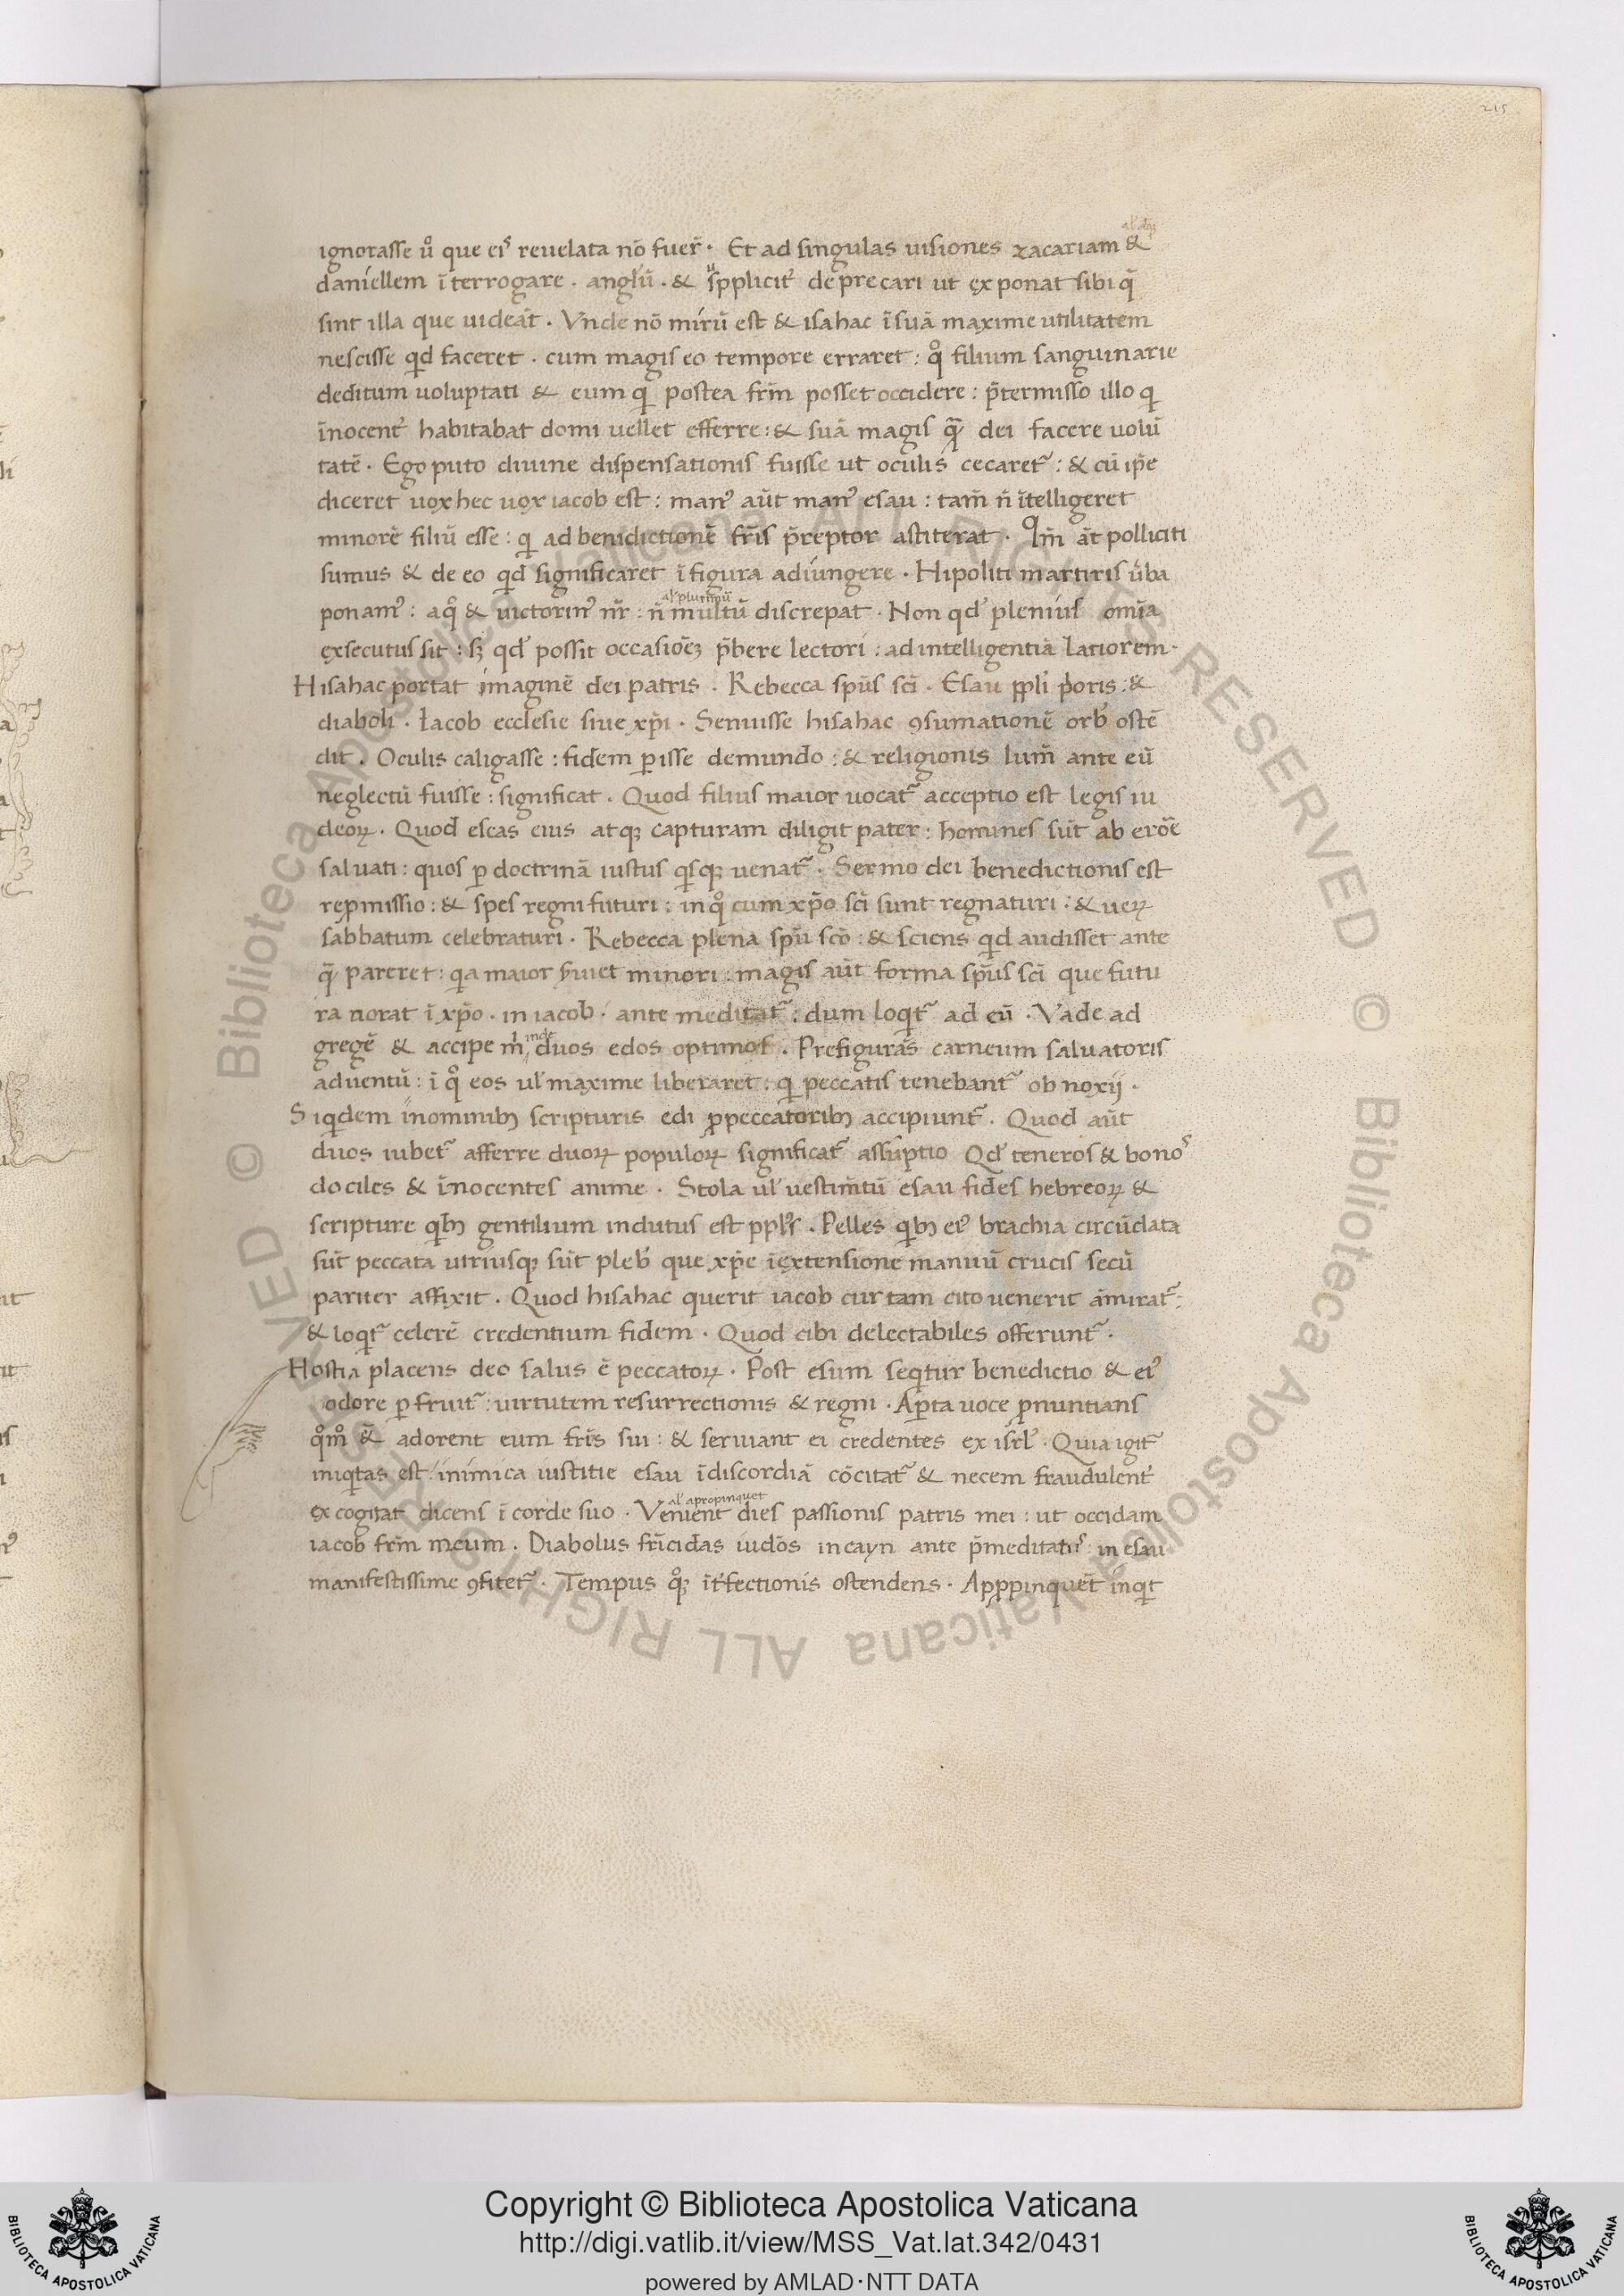 215
ignorasse ů que eiꝰ reuelata nō fuer̄. Et ad singulas uisiones zacariam &
daniellem ī terrogare. angl̄ū. & supplicit̄ deprecari ut exponat sibi q̄
sint illa que uideāt. Vnde nō mirū est & isahac ī suā maxime utilitatem
nescisse qd faceret. cum magis eo tempore erraret: qͦ filium sanguinarie
deditum uoluptati & eum qi postea frm̄ posset occidere: p̄termisso illo qi
īnocent̄ habitabat domi uellet efferre: & suā magis q̄ dei facere uolū
tatē. Ego puto diuine dispensationis fuisse ut oculis cecaretᷣ: & cū ip̄e
diceret uox hec uox iacob est: manꝰ aūt manꝰ esau: tam̄ n̄ ītelligeret
minorē filiū esse: qi ad benidictionē fr̄is p̄reptor astiterat. Qm̄ āt polliciti
sumus & de eo qd significaret ī figura adiungere. Hipoliti martiris ūba
ponamꝰ: a qͦ & uictorinꝰ nr̄: n̄ multū discrepat. Non qd' plenius om̄ia
al' plurimū
exsecutus sit: sꝫ qd' possit occasiōeꝫ p̄bere lectori: ad intelligentiā latiorem.
Hisahac portat imaginē dei patris. Rebecca spūs sci̅. Esau ppl̄i p̄oris: &
diaboli. Iacob ecclesie siue xp̄i. Senuisse hisahac ꝯsumationē orb̄ ostē
dit. Oculis caligasse: fidem ꝑisse demundo: & religionis lum̄ ante eū
neglectū fuisse: significat. Quod filius maior uocatᷣ acceptio est legis iu
deoꝝ. Quod escas eius atqꝫ capturam diligit pater: homines sūt ab erōe
saluati: quos ꝑ doctrinā iustus qisqꝫ uenatᷣ. Sermo dei benedictionis est
repmissio: & spes regni futuri: in qͦ cum xp̄o sci̅ sunt regnaturi: & ueꝝ
sabbatum celebraturi. Rebecca plena spū sco̅: & sciens qd audisset ante
q̄ pareret: qa maior s̄uiet minori: magis aūt forma spūs sci̅ que futu
ra norat ī xp̄o. in iacob. ante meditatᷣ: dum loqitᷣ ad eū. Vade ad
gregē & accipe m̄ inde duos edos optimos. Prefigurās carneum saluatoris
aduentū: ī qͦ eos ul' maxime liberaret: qi peccatis tenebantᷣ obnoxij.
Siqidem īnominibꝫ scripturis edi ꝓpeccatoribꝫ accipiuntᷣ. Quod aūt
duos iubetᷣ afferre duoꝝ populoꝝ significatᷣ assūptio Qd' teneros & bonoˢ
dociles & īnocentes anime. Stola ul' uestim̄tū esau fides hebreoꝝ &
scripture qibꝫ gentilium indutus est ppl's. Pelles qibꝫ eiꝰ brachia circūdata
sūt peccata utriusqꝫ sūt pleb̄ que xp̄e ī extensione manuū crucis secū
pariter affixit. Quod hisahac querit iacob cur tam cito uenerit āmiratᷣ:
& loqitᷣ celerē credentium fidem. Quod cibi delectabiles offeruntᷣ.
Hostia placens deo salus ē peccatoꝝ. Post esum seqitur benedictio & eiꝰ
odore ꝑfruitᷣ: uirtutem resurrectionis & regni. Aꝑta uoce ꝓnuntians
qͦmͦ & adorent eum fr̄is sui: & seruiant ei credentes ex isrl'. Quia igitᷣ
iniqitas est inimica iustitie esau īdiscordiā cōcitatᷣ & necem fraudulent̄
excogitat dicens ī corde suo. Venient dies passionis patris mei: ut occidam
al' apropinquet
iacob frm̄ meum. Diabolus fr̄icidas iudōs in cayn ante p̄meditatuˢ in esau
manifestissime ꝯfitetᷣ. Tempus qͦqꝫ īt̄fectionis ostendens. Apꝓpinquēt inqit
Copyright © Biblioteca Apostolica Vaticana
http://digi.vatlib.it/view/MSS_Vat.lat.342/0431
powered by AMLAD·NTT DATA
BIBLIOTECA APOSTOLICA VATICANA
BIBLIOTECA APOSTOLICA VATICANA
© Biblioteca Apostolica Vaticana ALL RIGHTS RESERVED © Biblioteca Apostolica Vaticana ALL RIGHTS RESERVED